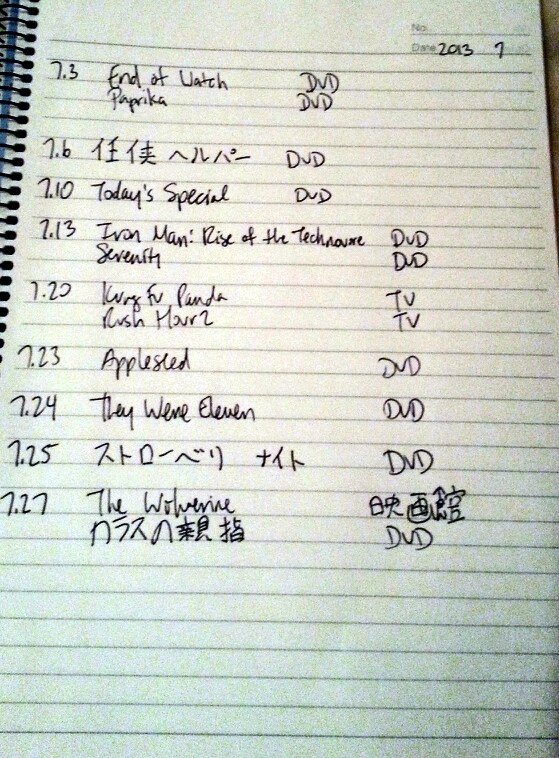 No.
Date 2013 7
7.3 End of Watch DVD
Paprika DVD
7.6 任侠ヘルパー DVD
7.10 Today's Special DVD
7.13 Iron Man: Rise of the Technovore DVD
Serenity DVD
7.20 Kung Fu Panda TV
Rush Hour 2 TV
7.23 Appleseed DVD
7.24 They Were Eleven DVD
7.25 ストローベリ ナイト DVD
7.27 The Wolverine 映画館
カラスの親指 DVD